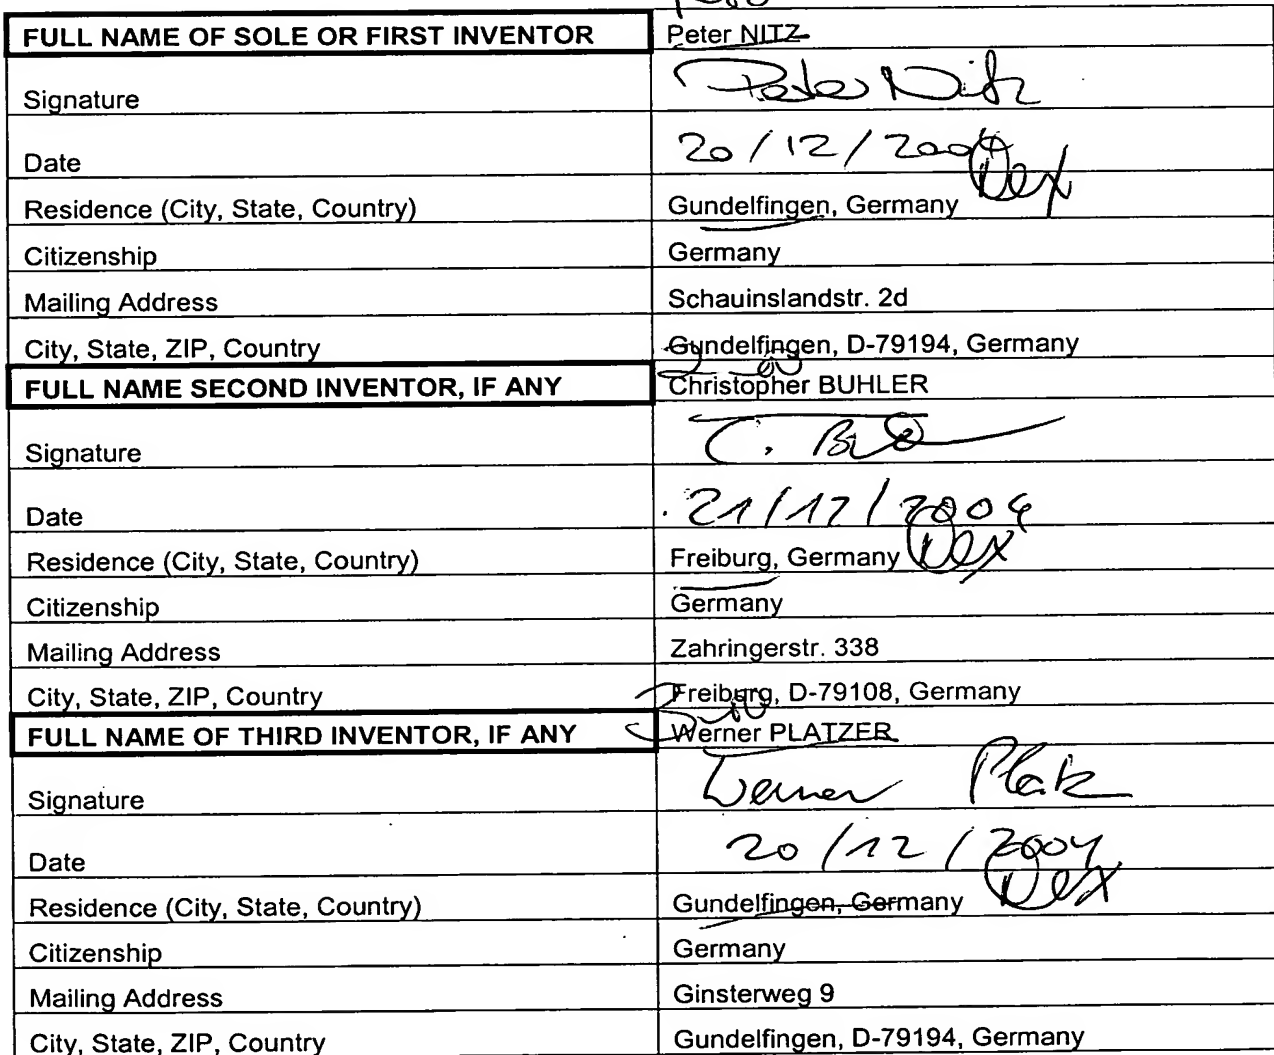 FULL NAME OF SOLE OR FIRST INVENTOR Peter NITZ
Signature Peter Nitz
Date 20/12/2004
DEX
Residence (City, State, Country) Gundelfingen, Germany
Citizenship Germany
Mailing Address Schauinslandstr. 2d
City, State, ZIP, Country Gundelfingen, D-79194, Germany
2-00
FULL NAME SECOND INVENTOR, IF ANY Christopher BUHLER
Signature C.
Date 21/12/2004
DEX
Residence (City, State, Country) Freiburg, Germany
Citizenship Germany
Mailing Address Zahringerstr. 338
City, State, ZIP, Country Freiburg, D-79108, Germany
3-00
FULL NAME OF THIRD INVENTOR, IF ANY Werner PLATZER
Signature Werner Platz
Date 20/12/2004
DEX
Residence (City, State, Country) Gundelfingen, Germany
Citizenship Germany
Mailing Address Ginsterweg 9
City, State, ZIP, Country Gundelfingen, D-79194, Germany